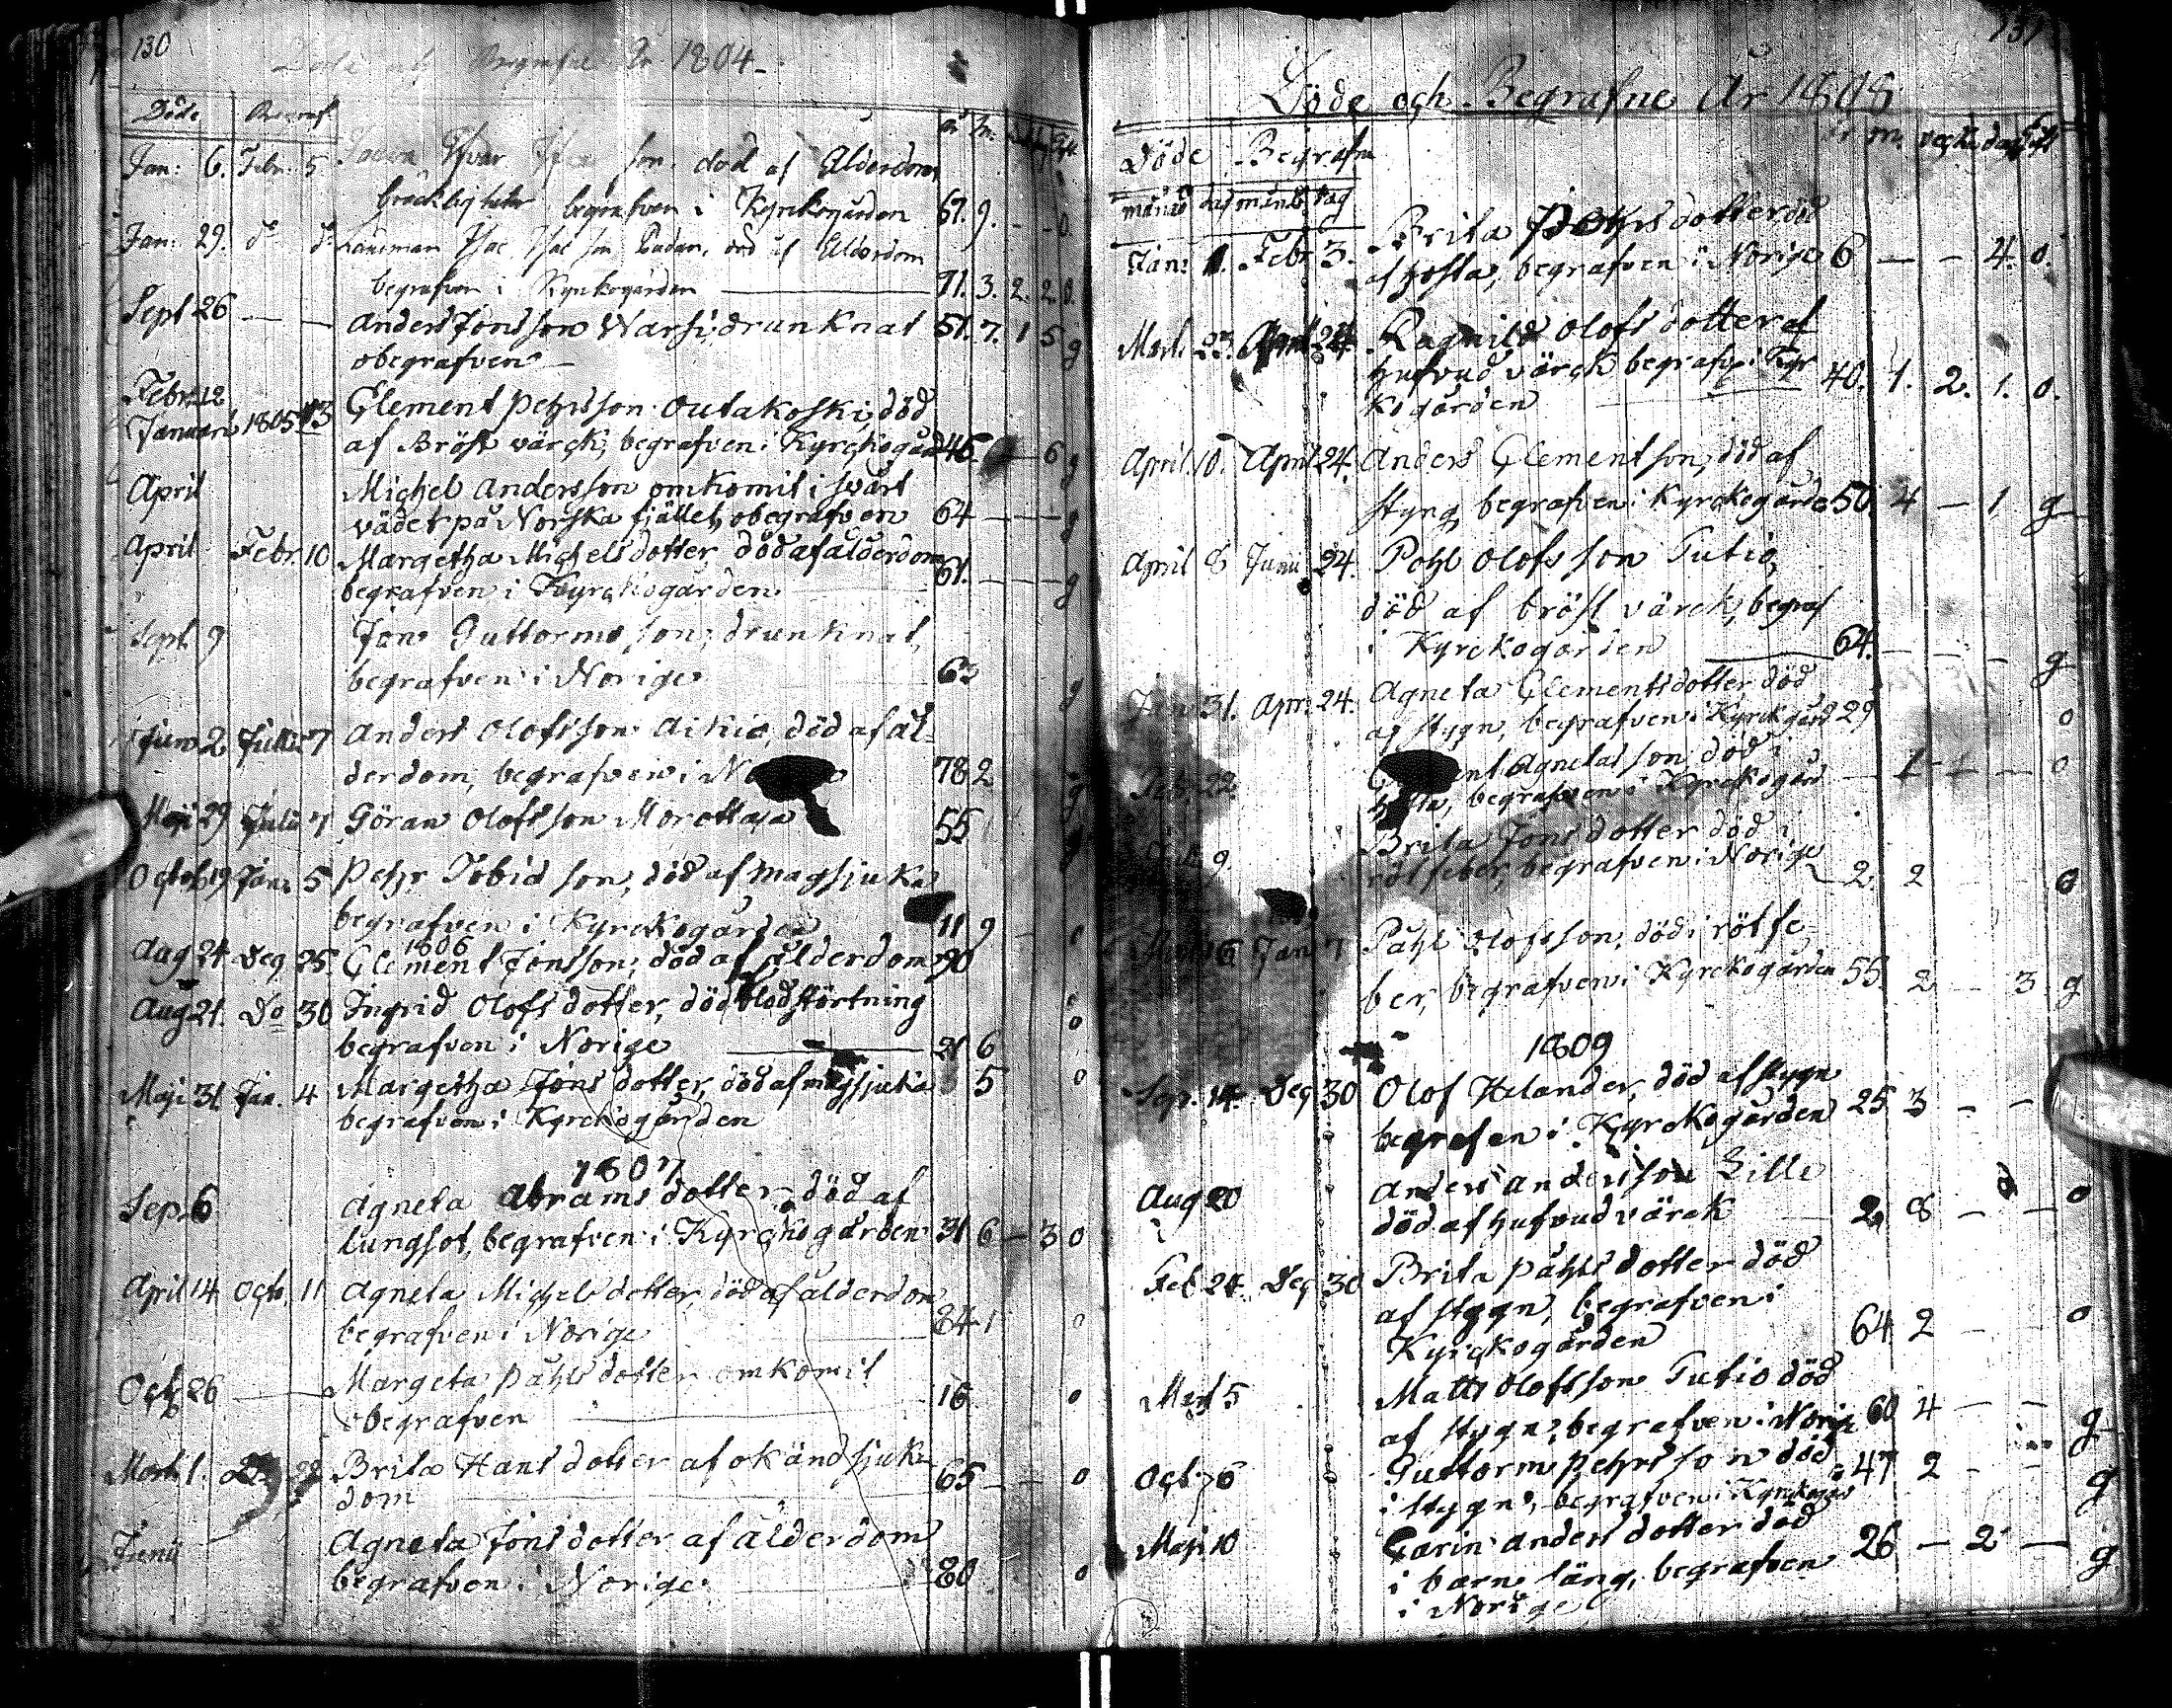 130
Begrafne År 1804
Döde Begraf
Jan: 6. Febr: 5 son. död af Ålderdoms
bräcklighet begrafven i Kyrckogården 67. 9. - - o.
Jan: 29. do do Länsman Isac Isac son död af Ålderdom
begrafven i Kyrkogården 71. 3. 2. 2 o.
Sept 26 — — Anders Jonsson Warsi, drunknat 51. 7. 1 5 g
obegrafven —
Febr. 12
Januari 1805 13 Clement Pehrsson Outakoski, död
af Bröst värck, begrafven i Kyrckogård 46. — 6 g
April Michel Andersson omkomit i svårt
vädet på Norska fjället, obegrafven 64 — — — g
April Febr. 10 Margetha Michelsdotter, död af ålderdom
begrafven i Kyrckogården 61. — — — g
Sept 9 Jon Guttormsson, drunknat,
begrafven i Norige 63 g
Juni 2 Julii 7 Anders Olofsson Aikio, död af ål-
derdom, begrafven i 78 2 g
Maji 29 Julii 7 Göran Olofsson Morottaja 55 g
Octob 19 Jan: 5 Pehr Tobias son, död af magsjuka
begrafven i Kyrckogården 11 9
1806
Aug 24 Dec 25 Clement Jonsson, död af ålderdom 90
Aug 21. Do 30 Ingrid Olofsdotter, död blodstörtning o
begrafven i Norige 21 6
Maji 31 Jan. 4 Margetha Jonsdotter, död af magsjuka 5 o
begrafven i Kyrckogården
1807
Sep. 6 Agneta Abramsdotter, död af
lungsot, begrafven i Kyrckogården 31 6 — 3 o
April 14 Octb. 11 Agneta Michelsdotter, död af ålderdom
begrafven i Norige 84 1 o
Octb 26 — Margeta Påhlsdotter omkomit
obegrafven 16 o
Mart. 1. Brita Hansdotter af okänd sjuk-
dom 65 — — o
Junii Agneta Jonsdotter af ålderdom
begrafven i Norige 80 o
131
Döde och Begrafne År 1808
Döde Begrafne år m. veckr dag
månad dag månad dag
Jan: 1. Febr 3. Brita Pehrsdotter, död
af hosta, begrafven i Norige 6 — — 4. o.
Mart. 23. April 24. Ragnild Olofsdotter af
hufvud värck begrafv. i Kyr
kogården 40. 1. 2. 1. o.
April 10. April 24. Anders Clementson, död af
styng, begrafven i Kyrckogården 50. 4 — 1 g
April 8 Junii 24. Pohl Olofsson Tutio,
död af bröst värck, begraf
i Kyrckogården 64. — — — g
Jan. 31. Apr: 24. Agneta Clementsdotter död
af stygn, begrafven i Kyrckgård 29 o
Feb. 22. Agnetas son, död i
hosta, begrafven i Kyrckogård — 1 1 — o
9. Brita Jonsdotter död i
rötfeber, begrafven i Norige 2 2 o
6 Jan 7 Påhl Olofsson, död i rötfe-
ber, begrafven i Kyrckogården 55. 2 — 3 g
1809
Sep. 14. Dec 30 Olof Helander, död af stygn
begrafven i Kyrckogården 25 3 — —
Aug 20 Anders Andersson Lille
död af hufvudvärck 2 8 — — o
Feb 24. Dec 30 Brita Påhlsdotter död
af stygn, begrafven i
Kyrckogården 64 2 — o
5 Matts Olofsson Tutio död
af stygn, begrafven i Norige 60 4 — — g
Oct. 6 Guttorm Pehrsson död
i stygn, begrafven i Kyrckogår 47 2 — — g
Maji 10 Carin Andersdotter död
i barnsäng, begrafven 26 — 2 — g
i Norige